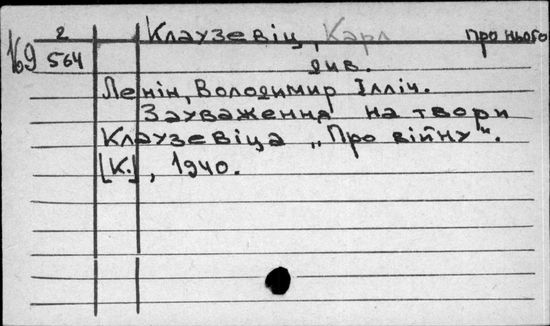 2
169
564
Клаузевіц, Карл про нього
див.
Ленін, Володимир Ілліч.
Зауваження на твори
Клаузевіца „Про війну".
[К.], 1940.